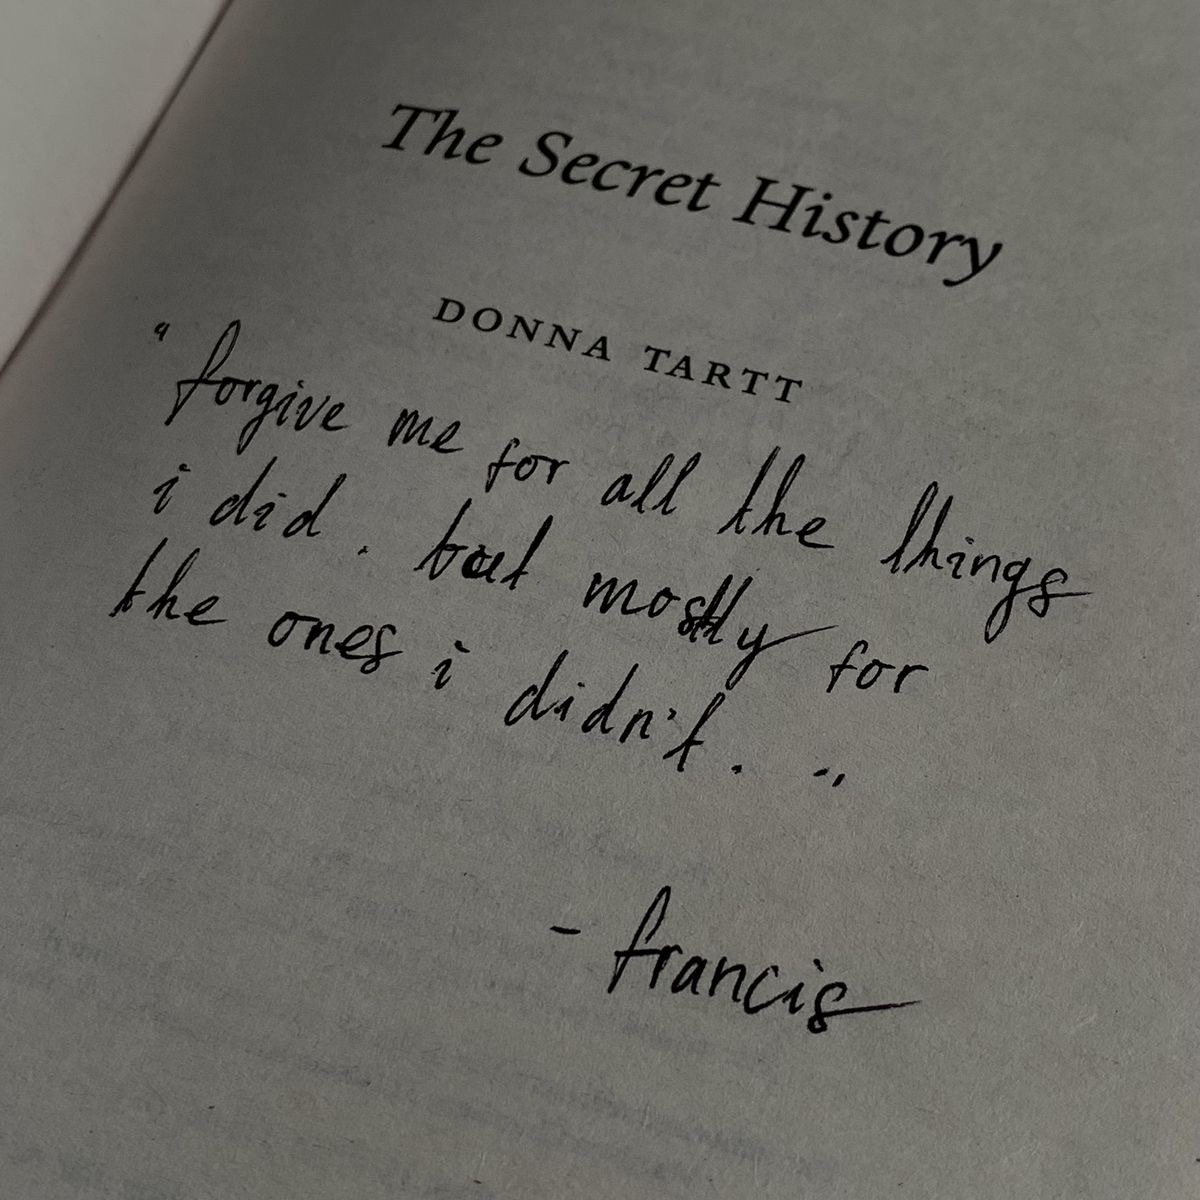 The Secret History
DONNA TARTT
"forgive me for all the things
i did. but mostly for
the ones i didn't. "
- francis